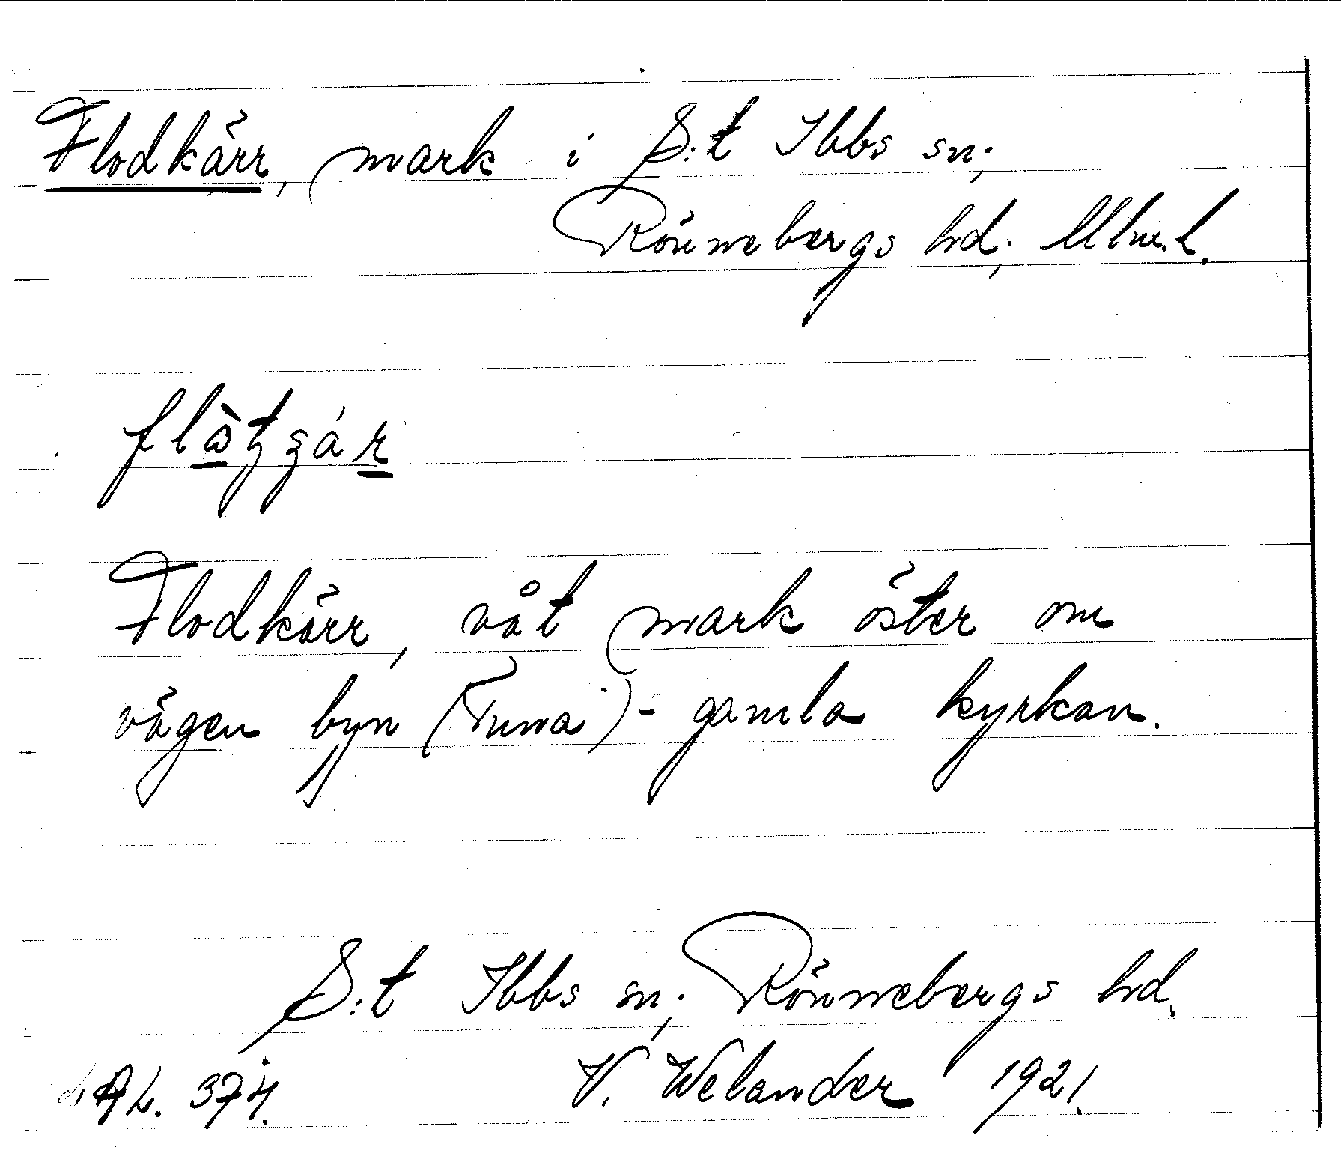 Flodkärr, mark i S:t Ibbs sn;
Rönnebergs hd; Mlm.l.
Flodkärr, våt mark öster om
vägen byn (Tuna) - gamla kyrkan.
S:t Ibbs sn; Rönnebergs hd.
V. Welander 1921.